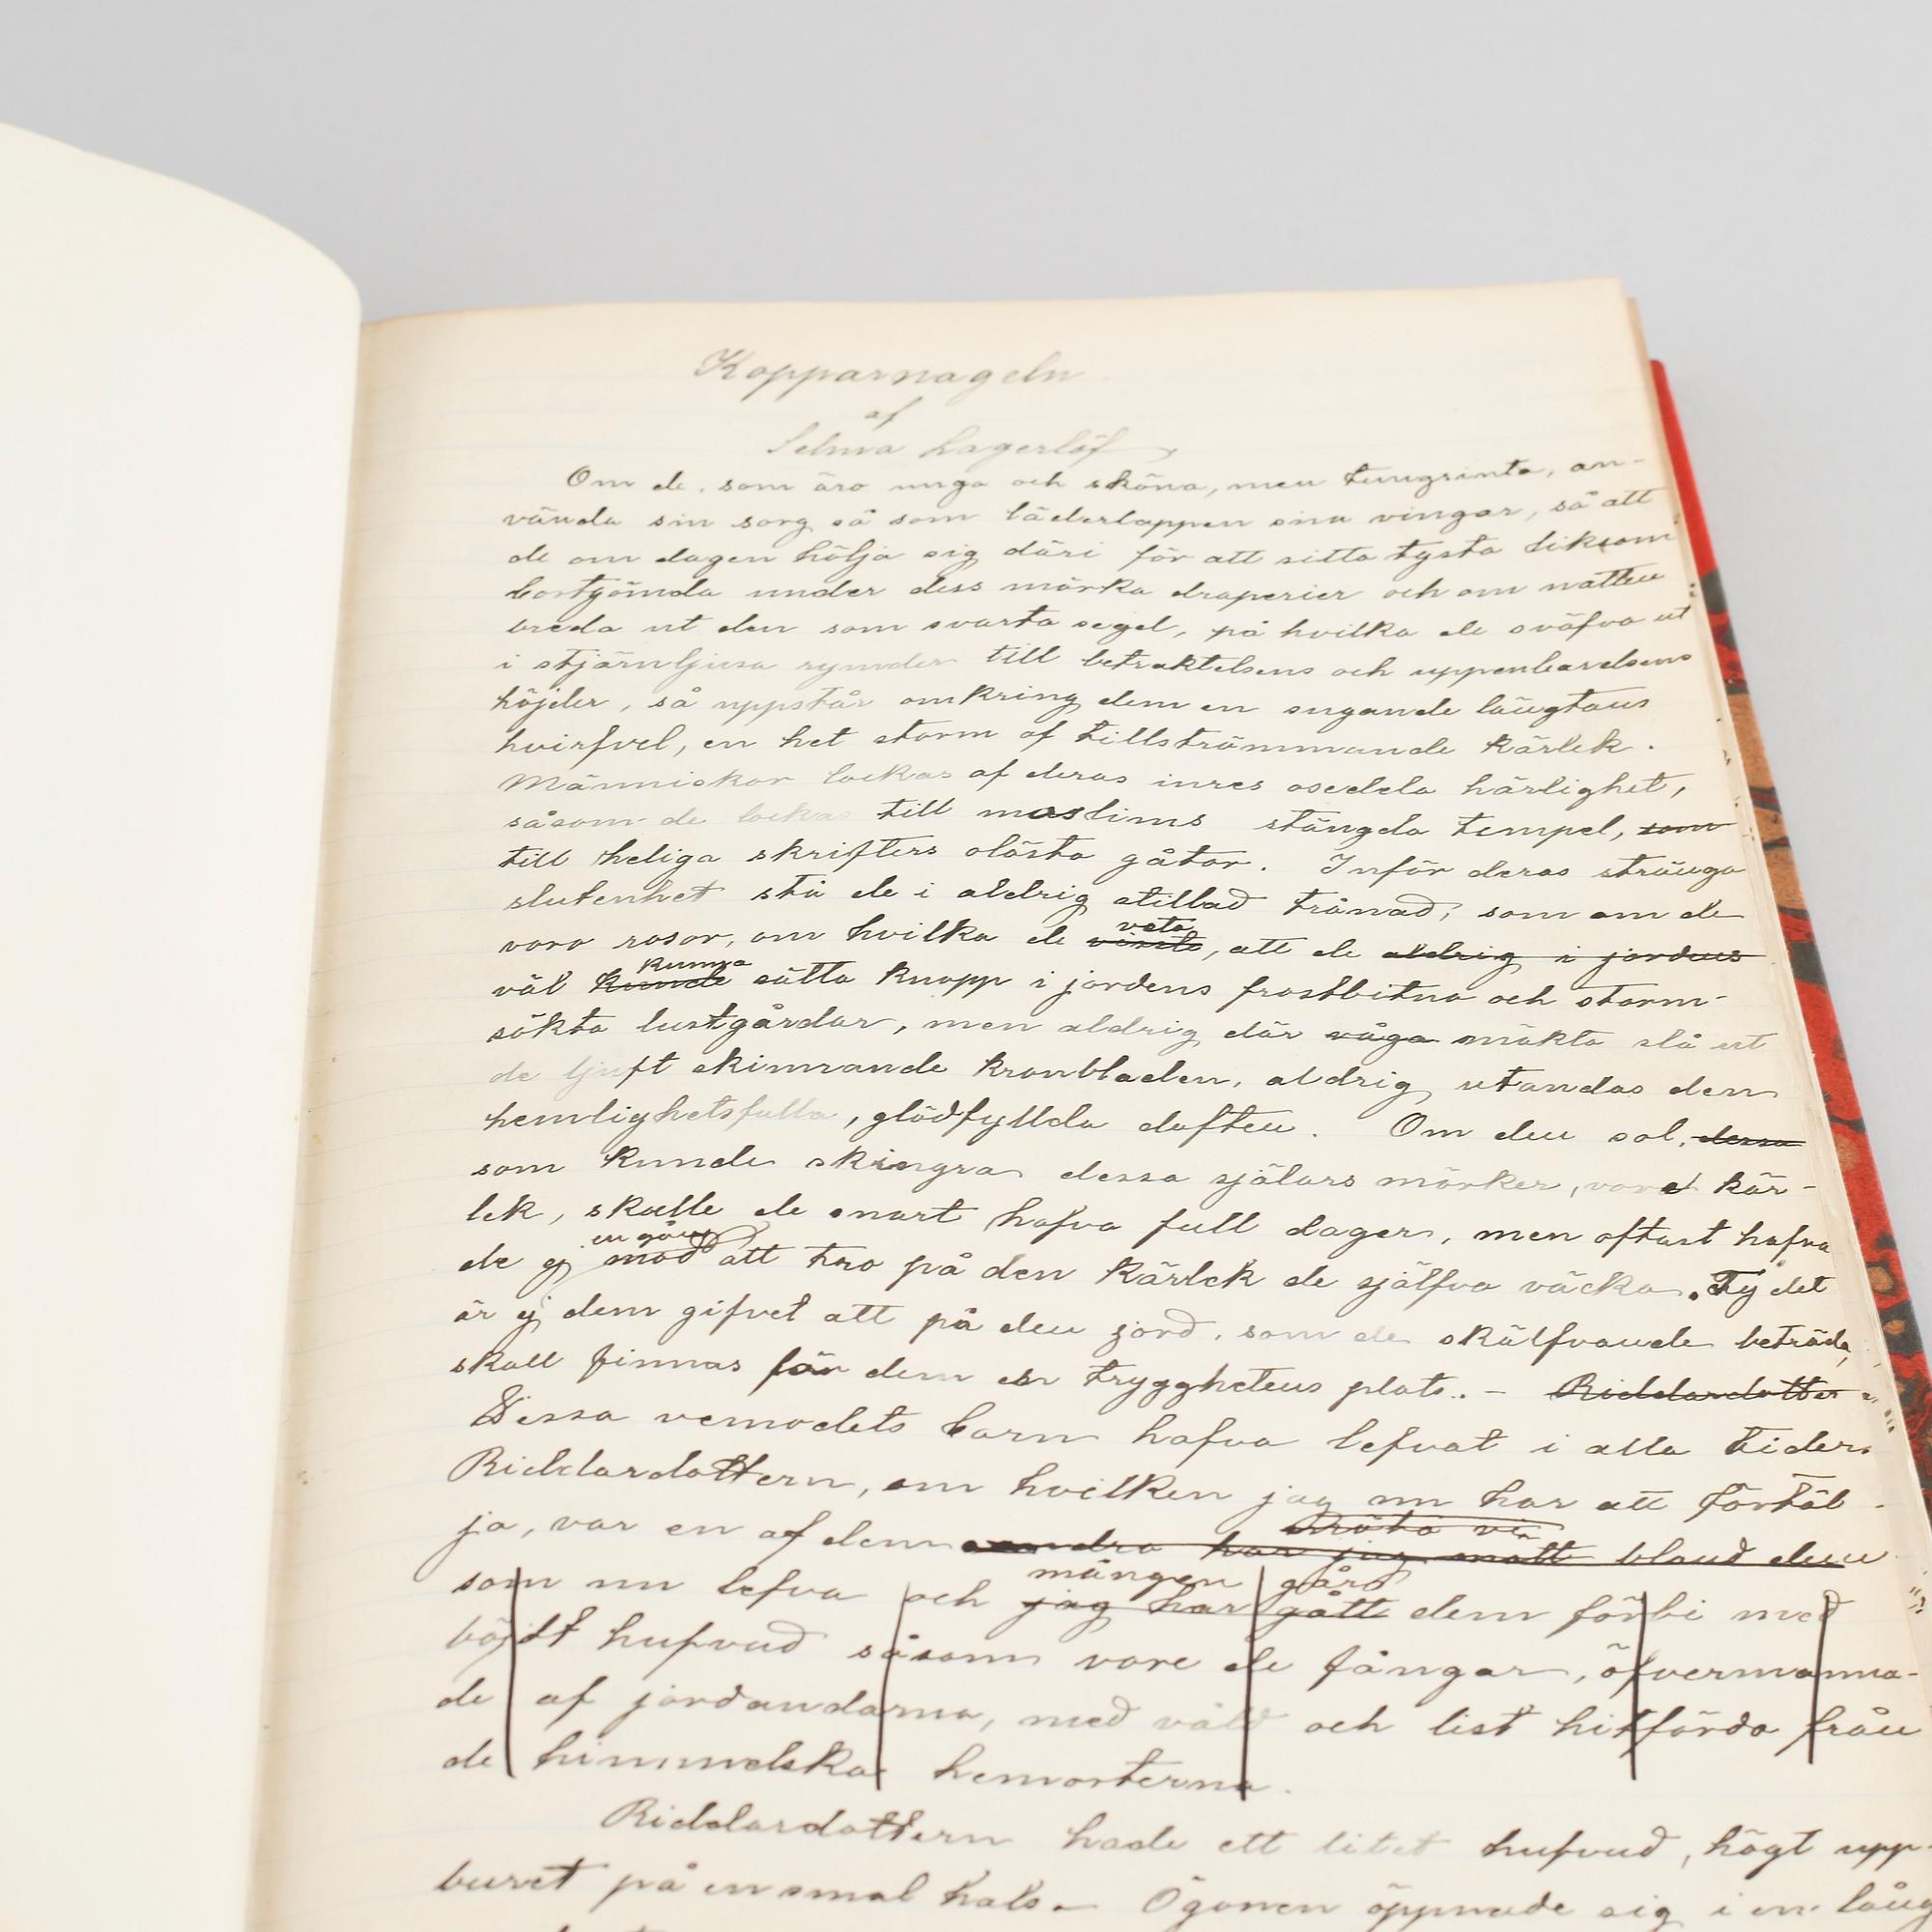 Kopparnageln
af
Selma Lagerlöf
Om de, som äro unga och sköna, men tungsinta, an-
vända sin sorg så som läderlappen sina vingar, så att
de om dagen hölja sig däri för att sitta tysta liksom
bortgömda under dess mörka draperier och om natten
breda ut den som svarta segel, på hvilka de sväfva ut
i stjärnljusa rymder till betraktelsens och uppenbarelsens
höjder, så uppstår omkring dem en sugande längtans
hvirfvel, en het storm af tillströmmande kärlek.
Människor lockas af deras inres osedda härlighet,
såsom de lockas till moslims stängda tempel, som
till heliga skrifters olösta gåtor. Inför deras stränga
slutenhet stå de i aldrig stillad trånad, som om de
veta
voro rosor, om hvilka de visste, att de aldrig i jordens
kunna
väl kunde sätta knopp i jordens frostbitna och storm-
sökta lustgårdar, men aldrig där våga mäkta slå ut
de ljuft skimrande kronbladen, aldrig utandas den
hemlighetsfulla, glödfyllda doften. Om den sol, dessa
som kunde skingra dessa själars mörker, vore kär-
lek, skulle de snart hafva full dager, men oftast hafva
en gång
de ej mod att tro på den kärlek de själfva väcka. Ty det
är ej dem gifvet att på den jord, som de skälfvande beträda,
skall finnas för dem en trygghetens plats. - Riddardotter
Dessa vemodets barn hafva lefvat i alla tider.
Riddardottern, om hvilken jag nu har att förtäl-
ja, var en af dem andra har jag mött bland dem
mången går
som nu lefva och jag har gått dem förbi med
böjdt hufvud såsom vore de fångar, öfvermanna-
de af jordandarna, med våld och list hitförda från
de himmelska hemorterna.
Riddardottern hade ett litet hufvud, högt upp-
buret på en smal hals. Ögonen öppnade sig i en lång